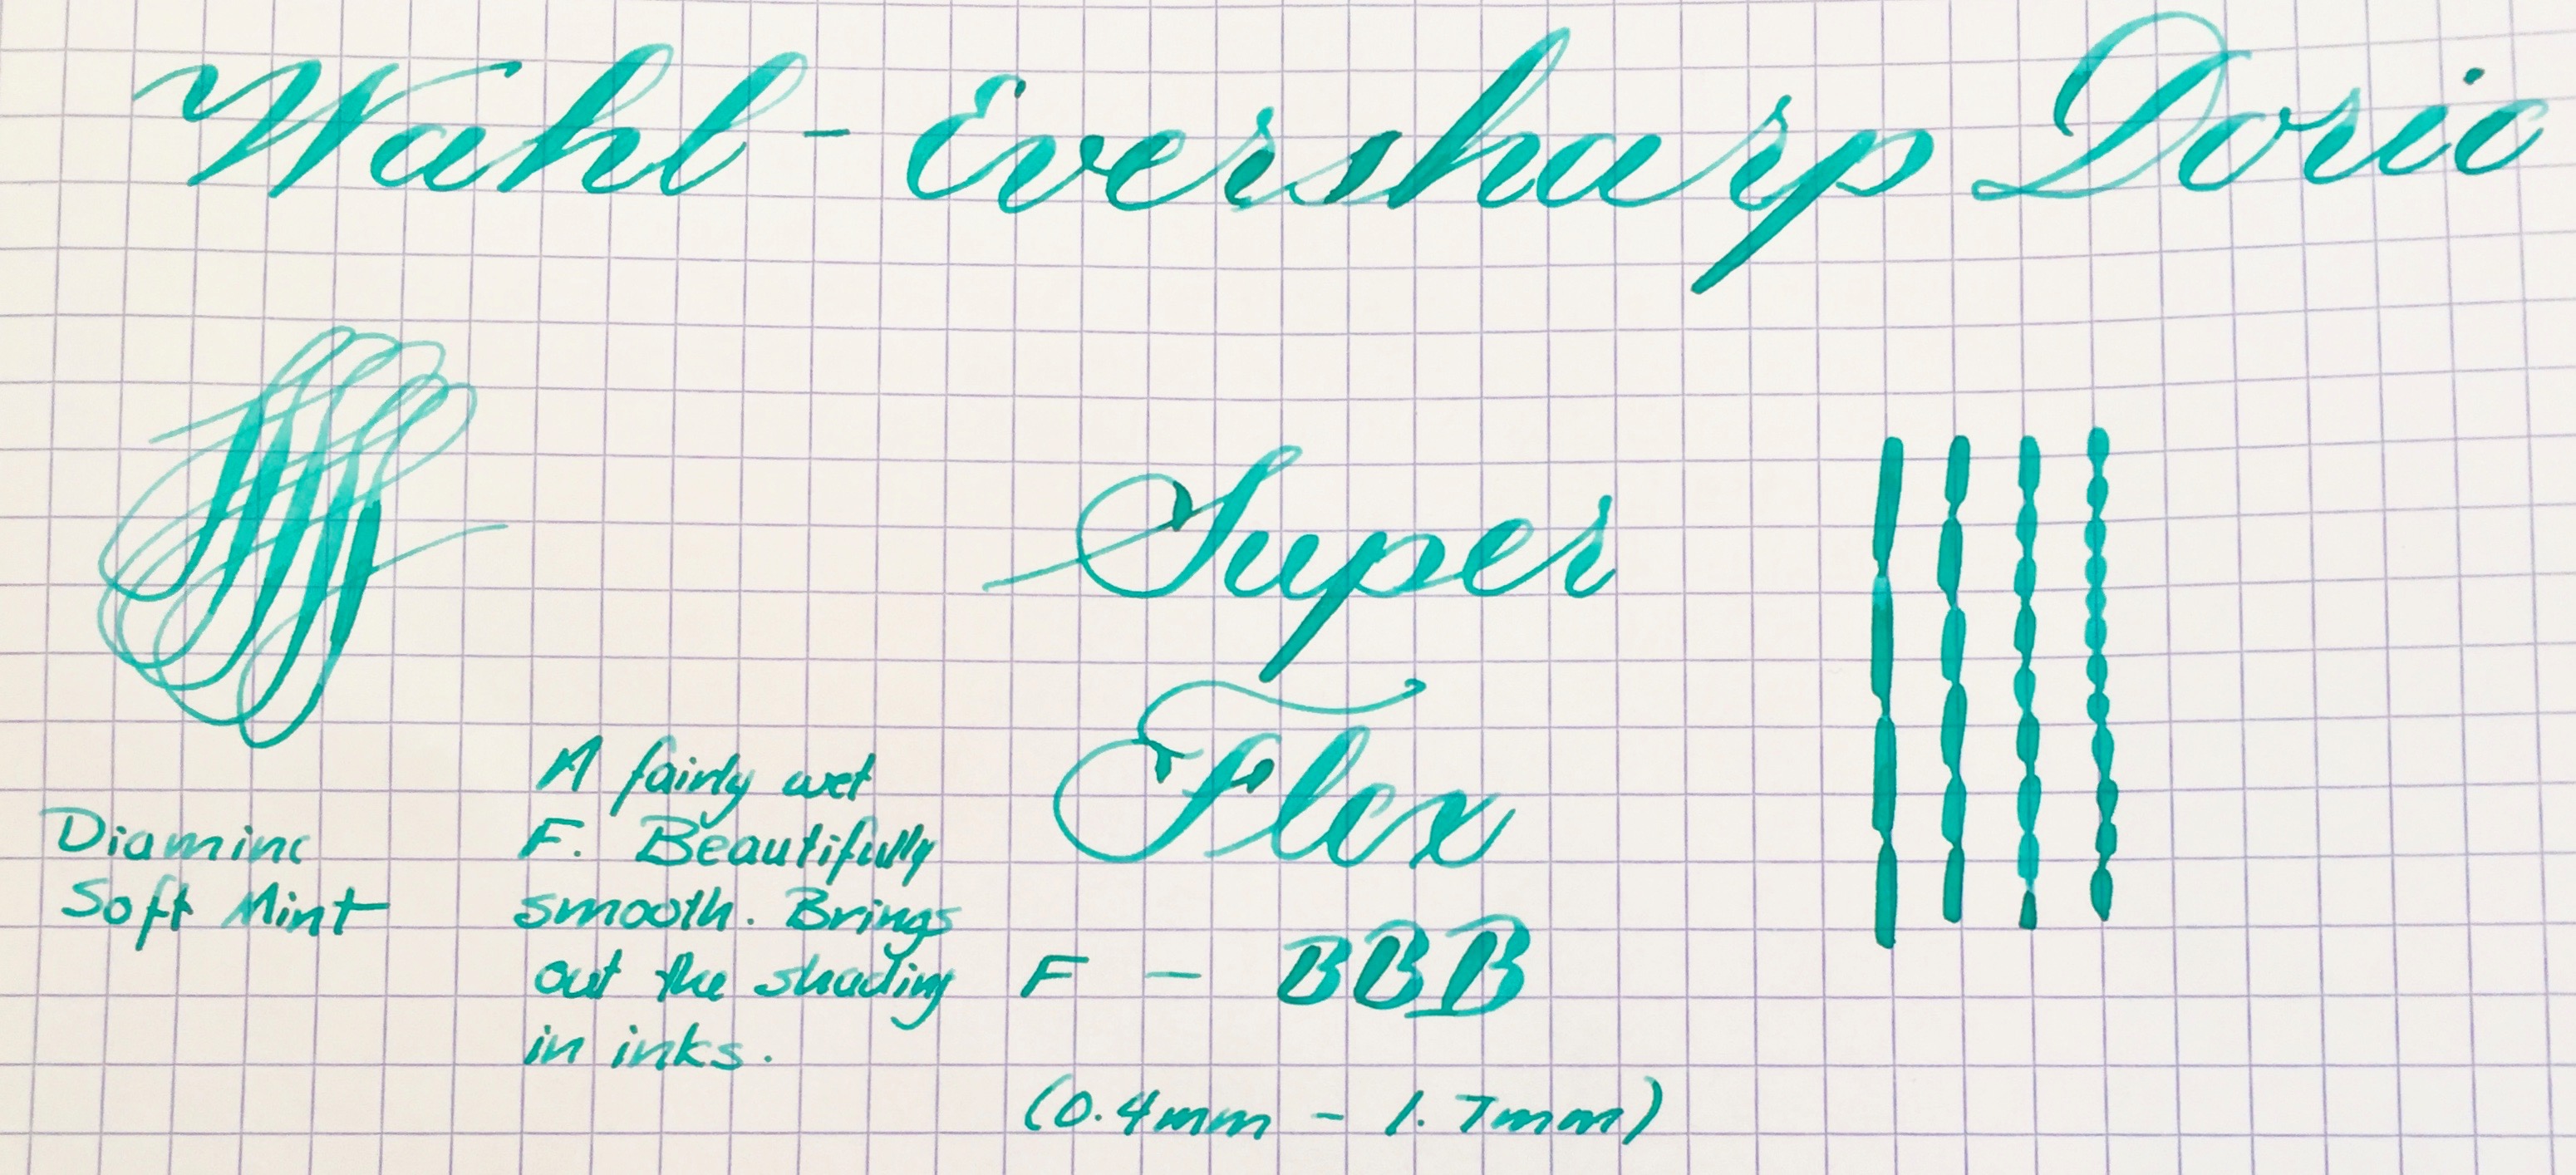 Wahl - Eversharp Doric
Super
Flex
Diamine
Soft Mint
A fairly wet
F. Beautifully
smooth. Brings
out the shading
in inks.
F - BBB
(0.4mm - 1.7mm)